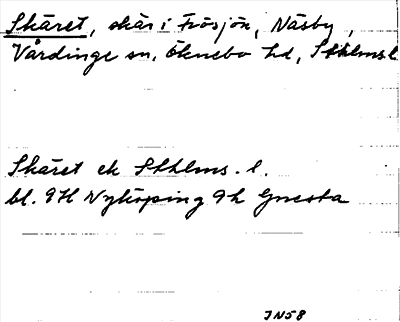 Skäret, skär i Frösjön, Näsby,
Vårdinge sn, Öknebo hd, Sthlms l.
Skäret ek Sthlms. l.
bl. 9H Nyköping 9h Gnesta
JN58